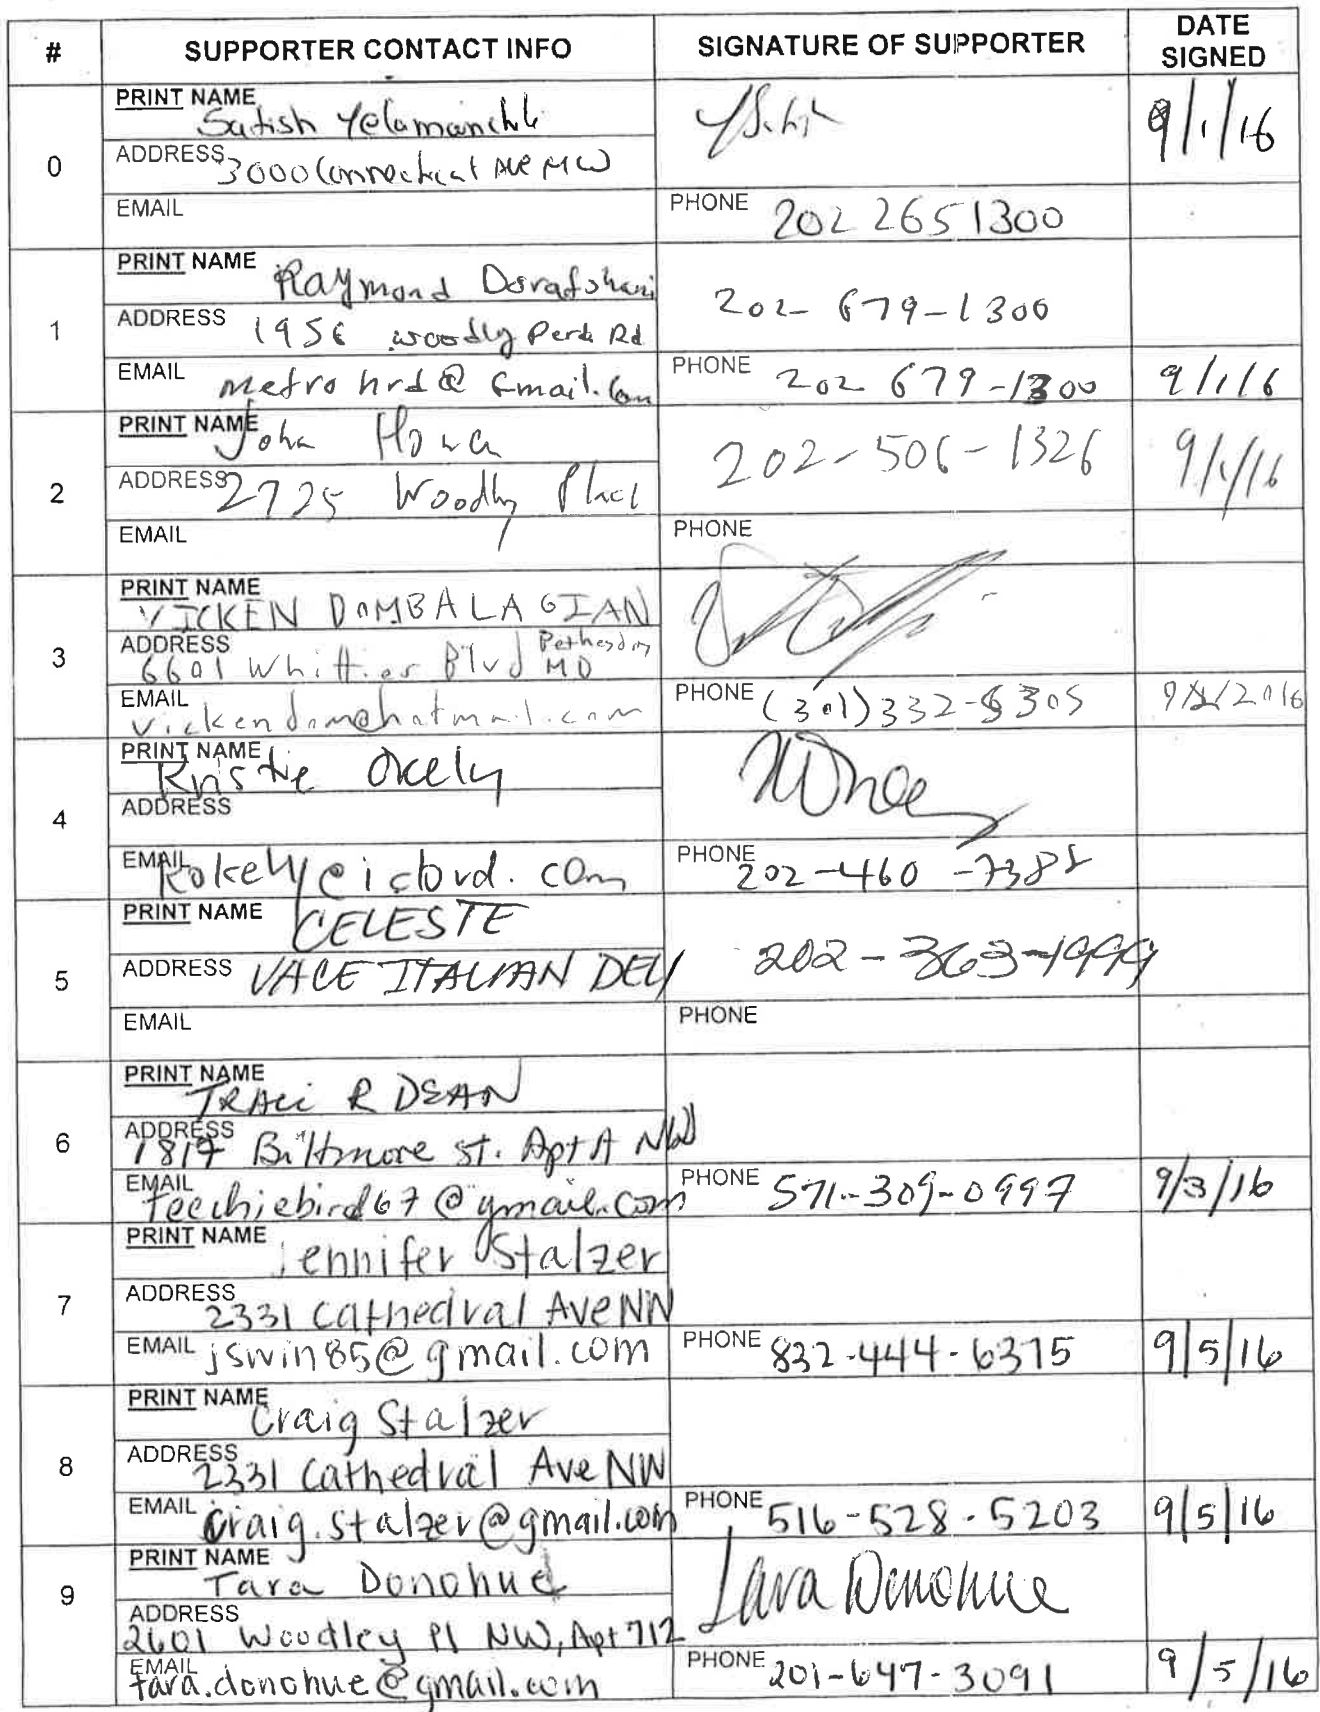 # SUPPORTER CONTACT INFO SIGNATURE OF SUPPORTER DATE SIGNED
0
PRINT NAME Satish Yelamanchili
9/1/16
ADDRESS 3000 Connecticut Ave NW
EMAIL
PHONE 202 265 1300
1
PRINT NAME Raymond Dorafshani
202-679-1300
ADDRESS 1956 woodly Rd
EMAIL metrohrd@Gmail.com
PHONE 202 679-1300 9/1/16
2
PRINT NAME John
202-506-1326 9/1/16
ADDRESS 2725 Woodly Place
EMAIL
PHONE
3
PRINT NAME VICKEN DOMBALAGIAN
ADDRESS 6601 Whittier Blvd Bethesda MD
EMAIL vickendom@hotmail.com
PHONE (301)332-5305 9/1/2016
4
PRINT NAME Kristie Okely
ADDRESS
EMAIL kokely@icloud.com
PHONE 202-460-7388
5
PRINT NAME CELESTE
202-363-1999
ADDRESS VACE ITALIAN DELI
EMAIL
PHONE
6
PRINT NAME TRACi R DEAN
ADDRESS 1817 Biltmore St. Apt A NW
EMAIL teechiebird67@gmail.com
PHONE 571-309-0997 9/3/16
7
PRINT NAME Jennifer Stalzer
ADDRESS 2331 Cathedral Ave NW
EMAIL jswin85@gmail.com
PHONE 832-444-6375 9/5/16
8
PRINT NAME Craig Stalzer
ADDRESS 2331 Cathedral Ave NW
EMAIL craig.stalzer@gmail.com
PHONE 516-528-5203 9/5/16
9
PRINT NAME Tara Donohue
Tara Donohue
ADDRESS 2601 Woodley Pl NW, Apt 712
EMAIL tara.donohue@gmail.com
PHONE 201-647-3091 9/5/16